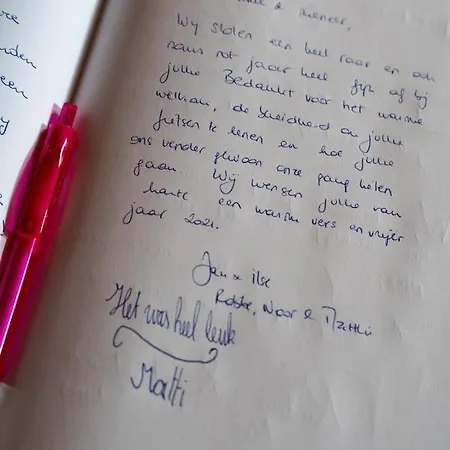 & meneer,
Wij sloten een heel raar en ook
naars rot jaar heel fijn af bij
jullie Bedankt voor het warme
welkom, de vrijheid om jullie
fietsen te lenen en hoe jullie
ons verder gewoon onze gang lieten
gaan. Wij wensen jullie van
harte een warm vers en vrijer
jaar 2021.
Jan & Ilse
Noor & Matti
Het was heel leuk
Matti